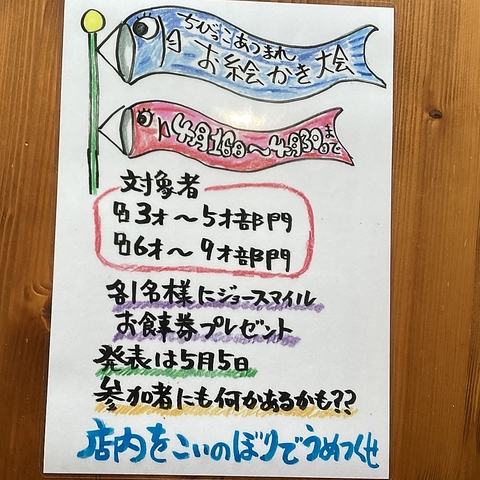 ちびっこあつまれ
お絵かき大会
4月16日〜4月30日まで
対象者
3才〜5才部門
6才〜9才部門
各1名様にジョースマイル
お食事券プレゼント
発表は5月5日
参加者にも何かあるかも??
店内をこいのぼりでうめつくせ